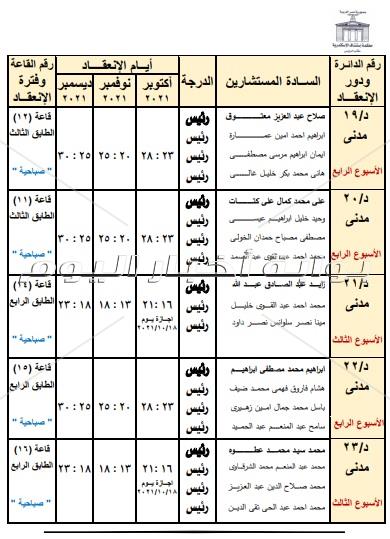 محكمة إستئناف الإسكندرية
رقم الدائرة ودور الإنعقاد
الســادة المستشارين
الدرجة
أيــام الإنعقــاد
أكتوبر ٢٠٢١
نوفمبر ٢٠٢١
ديسمبر ٢٠٢١
رقم القاعة وفترة الإنعقاد
د/١٩ مدنى
الأسبوع الرابع
صلاح عبد العزيز معتــوق
ابراهيم احمد امين عمــارة
ايمان ابراهيم مرسى مصطفــى
هانى محمد بكر خليل غالــى
رئيس
رئيس
رئيس
رئيس
٢٣ : ٢٨
٢٠ : ٢٥
٢٥ : ٣٠
قاعة (١٢)
الطابق الثالث
" صباحية "
د/٢٠ مدنى
الأسبوع الرابع
على محمد كمال على كتــات
وحيد خليل ابراهيم
مصطفى مصباح حمدان الخولى
محمد احمد عبد القوى عبد الصمد
رئيس
رئيس
رئيس
رئيس
٢٣ : ٢٨
٢٠ : ٢٥
٢٥ : ٣٠
قاعة (١١)
الطابق الثالث
" صباحية "
بوابة اخبار اليوم
د/٢١ مدنى
الأسبوع الثالث
زايد عبد الصادق عبد الله
محمد احمد عبد القــوى خليل
مينا نصر سلوانس نصر داود
رئيس
رئيس
رئيس
١٦ : ٢١
اجازة يوم
٢٠٢١/١٠/١٨
١٣ : ١٨
١٨ : ٢٣
قاعة
الطابق الرابع
" صباحية "
د/٢٢ مدنى
الأسبوع الرابع
ابراهيم محمد مصطفى ابراهيــم
هشام فاروق فهمى محمــد ضيف
باسل محمد جمال امين زهيرى
سامح عبد المنعــم عبد الحميد
رئيس
رئيس
رئيس
رئيس
٢٣ : ٢٨
٢٠ : ٢٥
٢٥ : ٣٠
قاعة (١٥)
الطابق الرابع
" صباحية "
د/٢٣ مدنى
الأسبوع الثالث
محمد سيد محمــد عطــوه
محمد عبد المنعــم محمد الشرقاوى
محمد صلاح الدين عبد العزيز
محمد احمد عبد الحى تقى الدين
رئيس
رئيس
رئيس
رئيس
١٦ : ٢١
اجازة يوم
٢٠٢١/١٠/١٨
١٣ : ١٨
١٨ : ٢٣
قاعة (١٦)
الطابق الرابع
" صباحية "